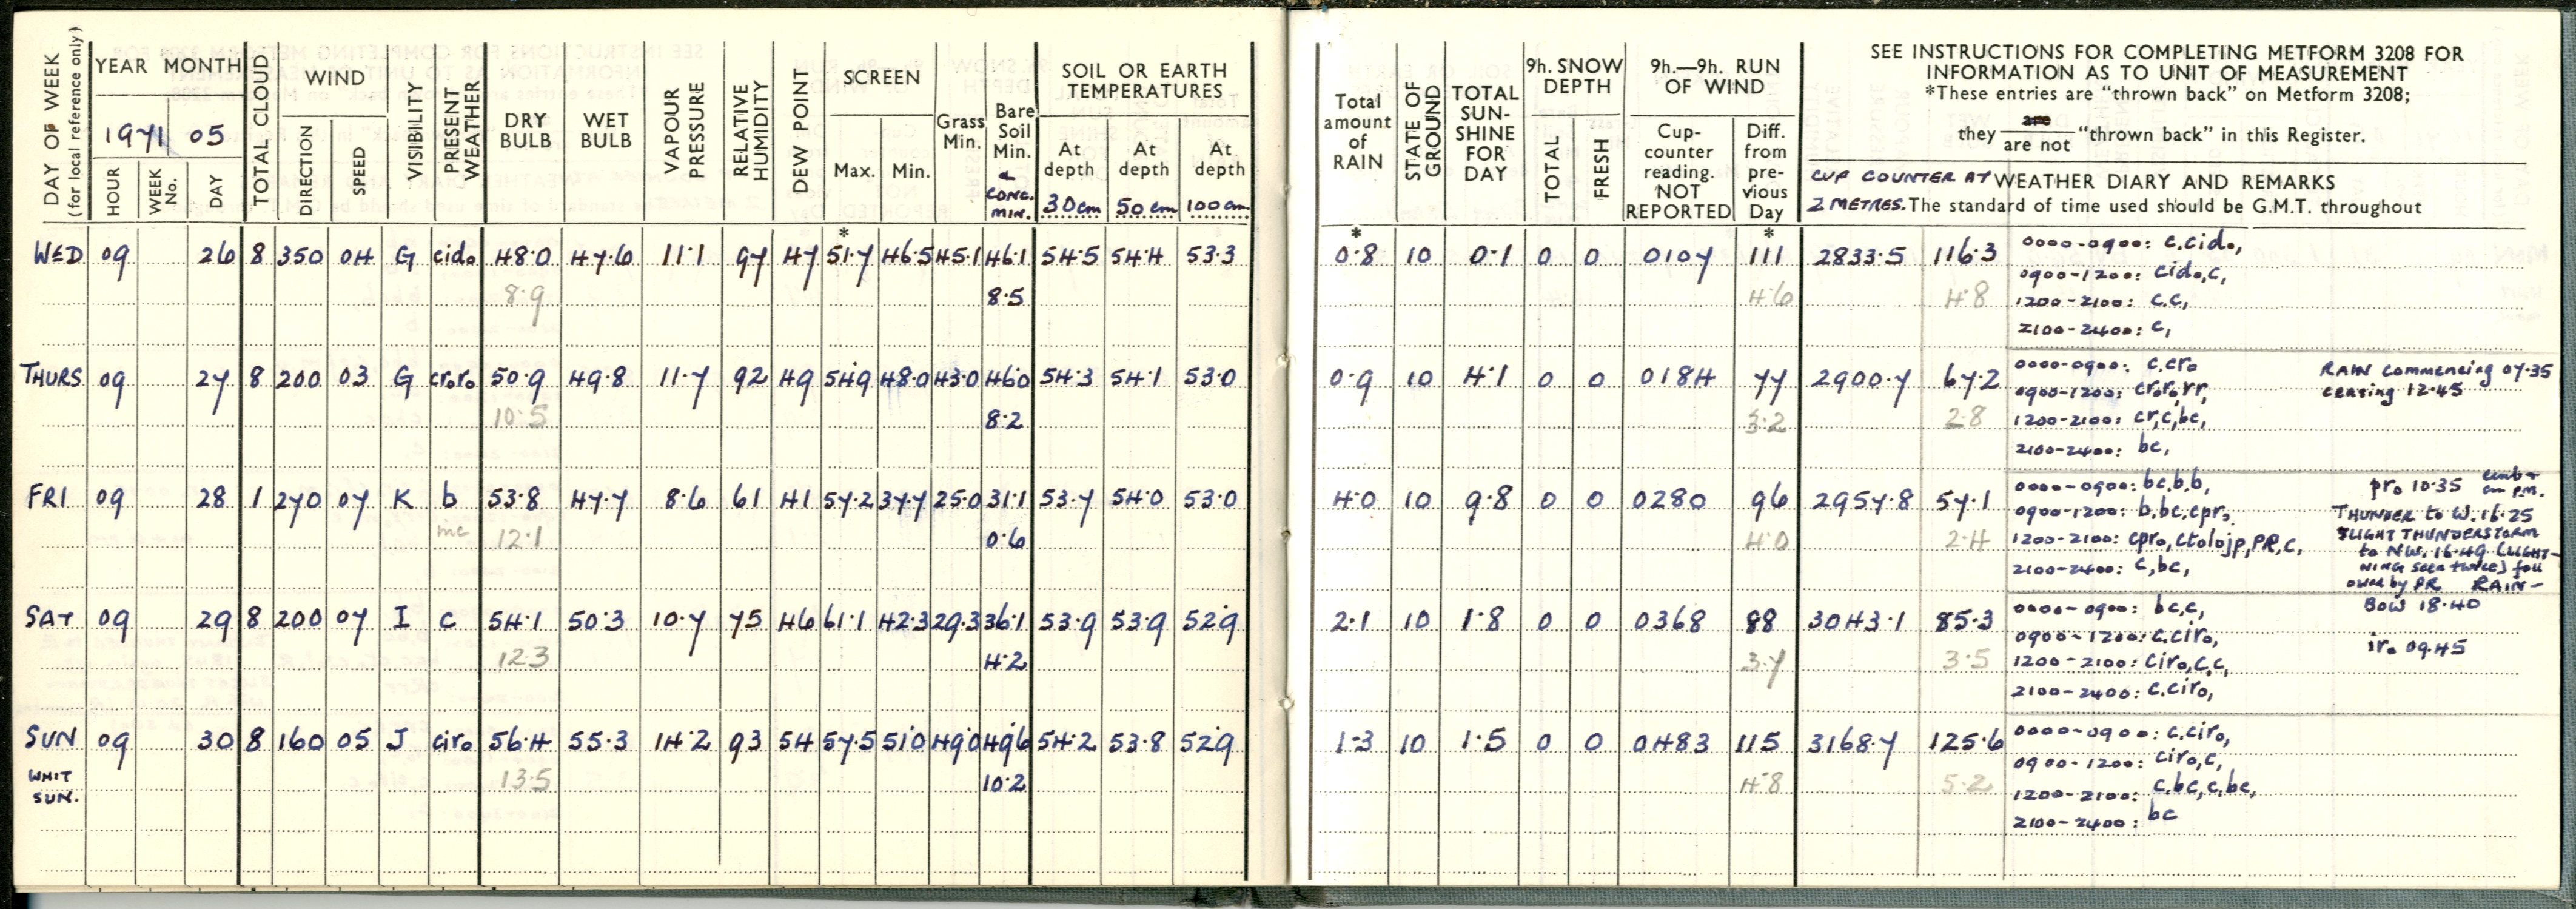 DAY OF WEEK
(for local reference only)
YEAR MONTH
1971 05
HOUR
WEEK No.
DAY
TOTAL CLOUD
WIND
DIRECTION
SPEED
VISIBILITY
PRESENT WEATHER
DRY BULB
WET BULB
VAPOUR PRESSURE
RELATIVE HUMIDITY
DEW POINT
SCREEN
Max. Min.
Grass Min.
Bare Soil Min.
& CONC. MIN.
SOIL OR EARTH TEMPERATURES
At depth 30cm
At depth 50cm
At depth 100cm
Total amount of RAIN
STATE OF GROUND
TOTAL SUN-SHINE FOR DAY
9h. SNOW DEPTH
TOTAL
FRESH
9h.—9h. RUN OF WIND
Cup-counter reading. NOT REPORTED
Diff. from pre-vious Day
SEE INSTRUCTIONS FOR COMPLETING METFORM 3208 FOR
INFORMATION AS TO UNIT OF MEASUREMENT
*These entries are "thrown back" on Metform 3208;
they are / are not "thrown back" in this Register.
CUP COUNTER AT WEATHER DIARY AND REMARKS
2 METRES. The standard of time used should be G.M.T. throughout
* * *
WED 09 26 8 350 04 G cido 48.0 47.6 11.1 97 47 51.7 46.5 45.1 46.1 54.5 54.4 53.3 0.8 10 0.1 0 0 0107 111 2833.5 116.3
8.9 8.5 4.6 4.8
0000-0900: c,cido,
0900-1200: cido,c,
1200-2100: c,c,
2100-2400: c,
THURS 09 27 8 200 03 G croro 50.9 49.8 11.7 92 49 54.9 48.0 43.0 46.0 54.3 54.1 53.0 0.9 10 4.1 0 0 0184 77 2900.7 67.2
10.5 8.2 3.2 2.8
0000-0900: c,cro
0900-1200: cr,ro,rr,
1200-2100: cr,c,bc,
2100-2400: bc,
RAIN commencing 07.35
ceasing 12.45
FRI 09 28 1 270 07 K b 53.8 47.7 8.6 61 41 57.2 37.7 25.0 31.1 53.7 54.0 53.0 4.0 10 9.8 0 0 0280 96 2957.8 57.1
mc 12.1 0.6 4.0 2.4
0000-0900: bc,b,b,
0900-1200: b,bc,cpro,
1200-2100: cpro,ctolojp,PR,c,
2100-2400: c,bc,
pro 10.35
THUNDER to W. 16.25
SLIGHT THUNDERSTORM
to NW. 16.49 (LIGHT-
NING seen twice) foll
owed by PR RAIN-
BOW 18.40
SAT 09 29 8 200 07 I c 54.1 50.3 10.7 75 46 61.1 42.3 29.3 36.1 53.9 53.9 52.9 2.1 10 1.8 0 0 0368 88 3043.1 85.3
12.3 4.2 3.7 3.5
0000-0900: bc,c,
0900-1200: c,ciro,
1200-2100: ciro,c,c,
2100-2400: c,ciro,
iro 09.45
SUN 09 30 8 160 05 J ciro 56.4 55.3 14.2 93 54 57.5 51.0 49.0 49.6 54.2 53.8 52.9 1.3 10 1.5 0 0 0483 115 3168.7 125.6
WHIT
SUN.
13.5 10.2 4.8 5.2
0000-0900: c,ciro,
0900-1200: ciro,c,
1200-2100: c,bc,c,bc,
2100-2400: bc